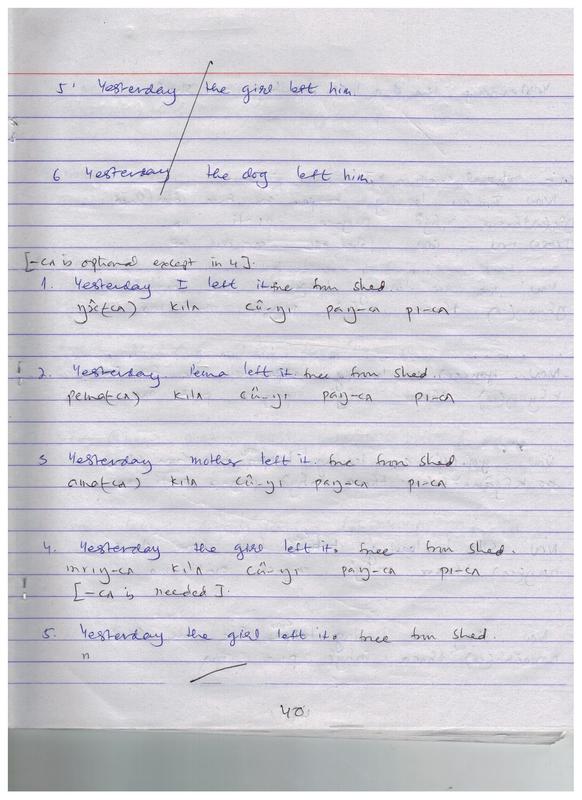 5. Yesterday the girl left him.
6 Yesterday the dog left him.
[-cʌ is optional except in 4].
1. Yesterday I left it free from shed
(cʌ) kilʌ cû-yı paŋ-cʌ pı-cʌ
2. Yesterday Pema left it. free from shed.
pema(-cʌ) kılʌ cû-yı paŋ-cʌ pı-cʌ
3 Yesterday mother left it. free from shed
ama(-cʌ) kılʌ cû-yı paŋ-cʌ pı-cʌ
4. Yesterday the girl left it. free from shed.
mrıŋ-cʌ kılʌ cû-yı paŋ-cʌ pı-cʌ
[-cʌ is needed].
5. Yesterday the girl left it. free from shed.
n
40